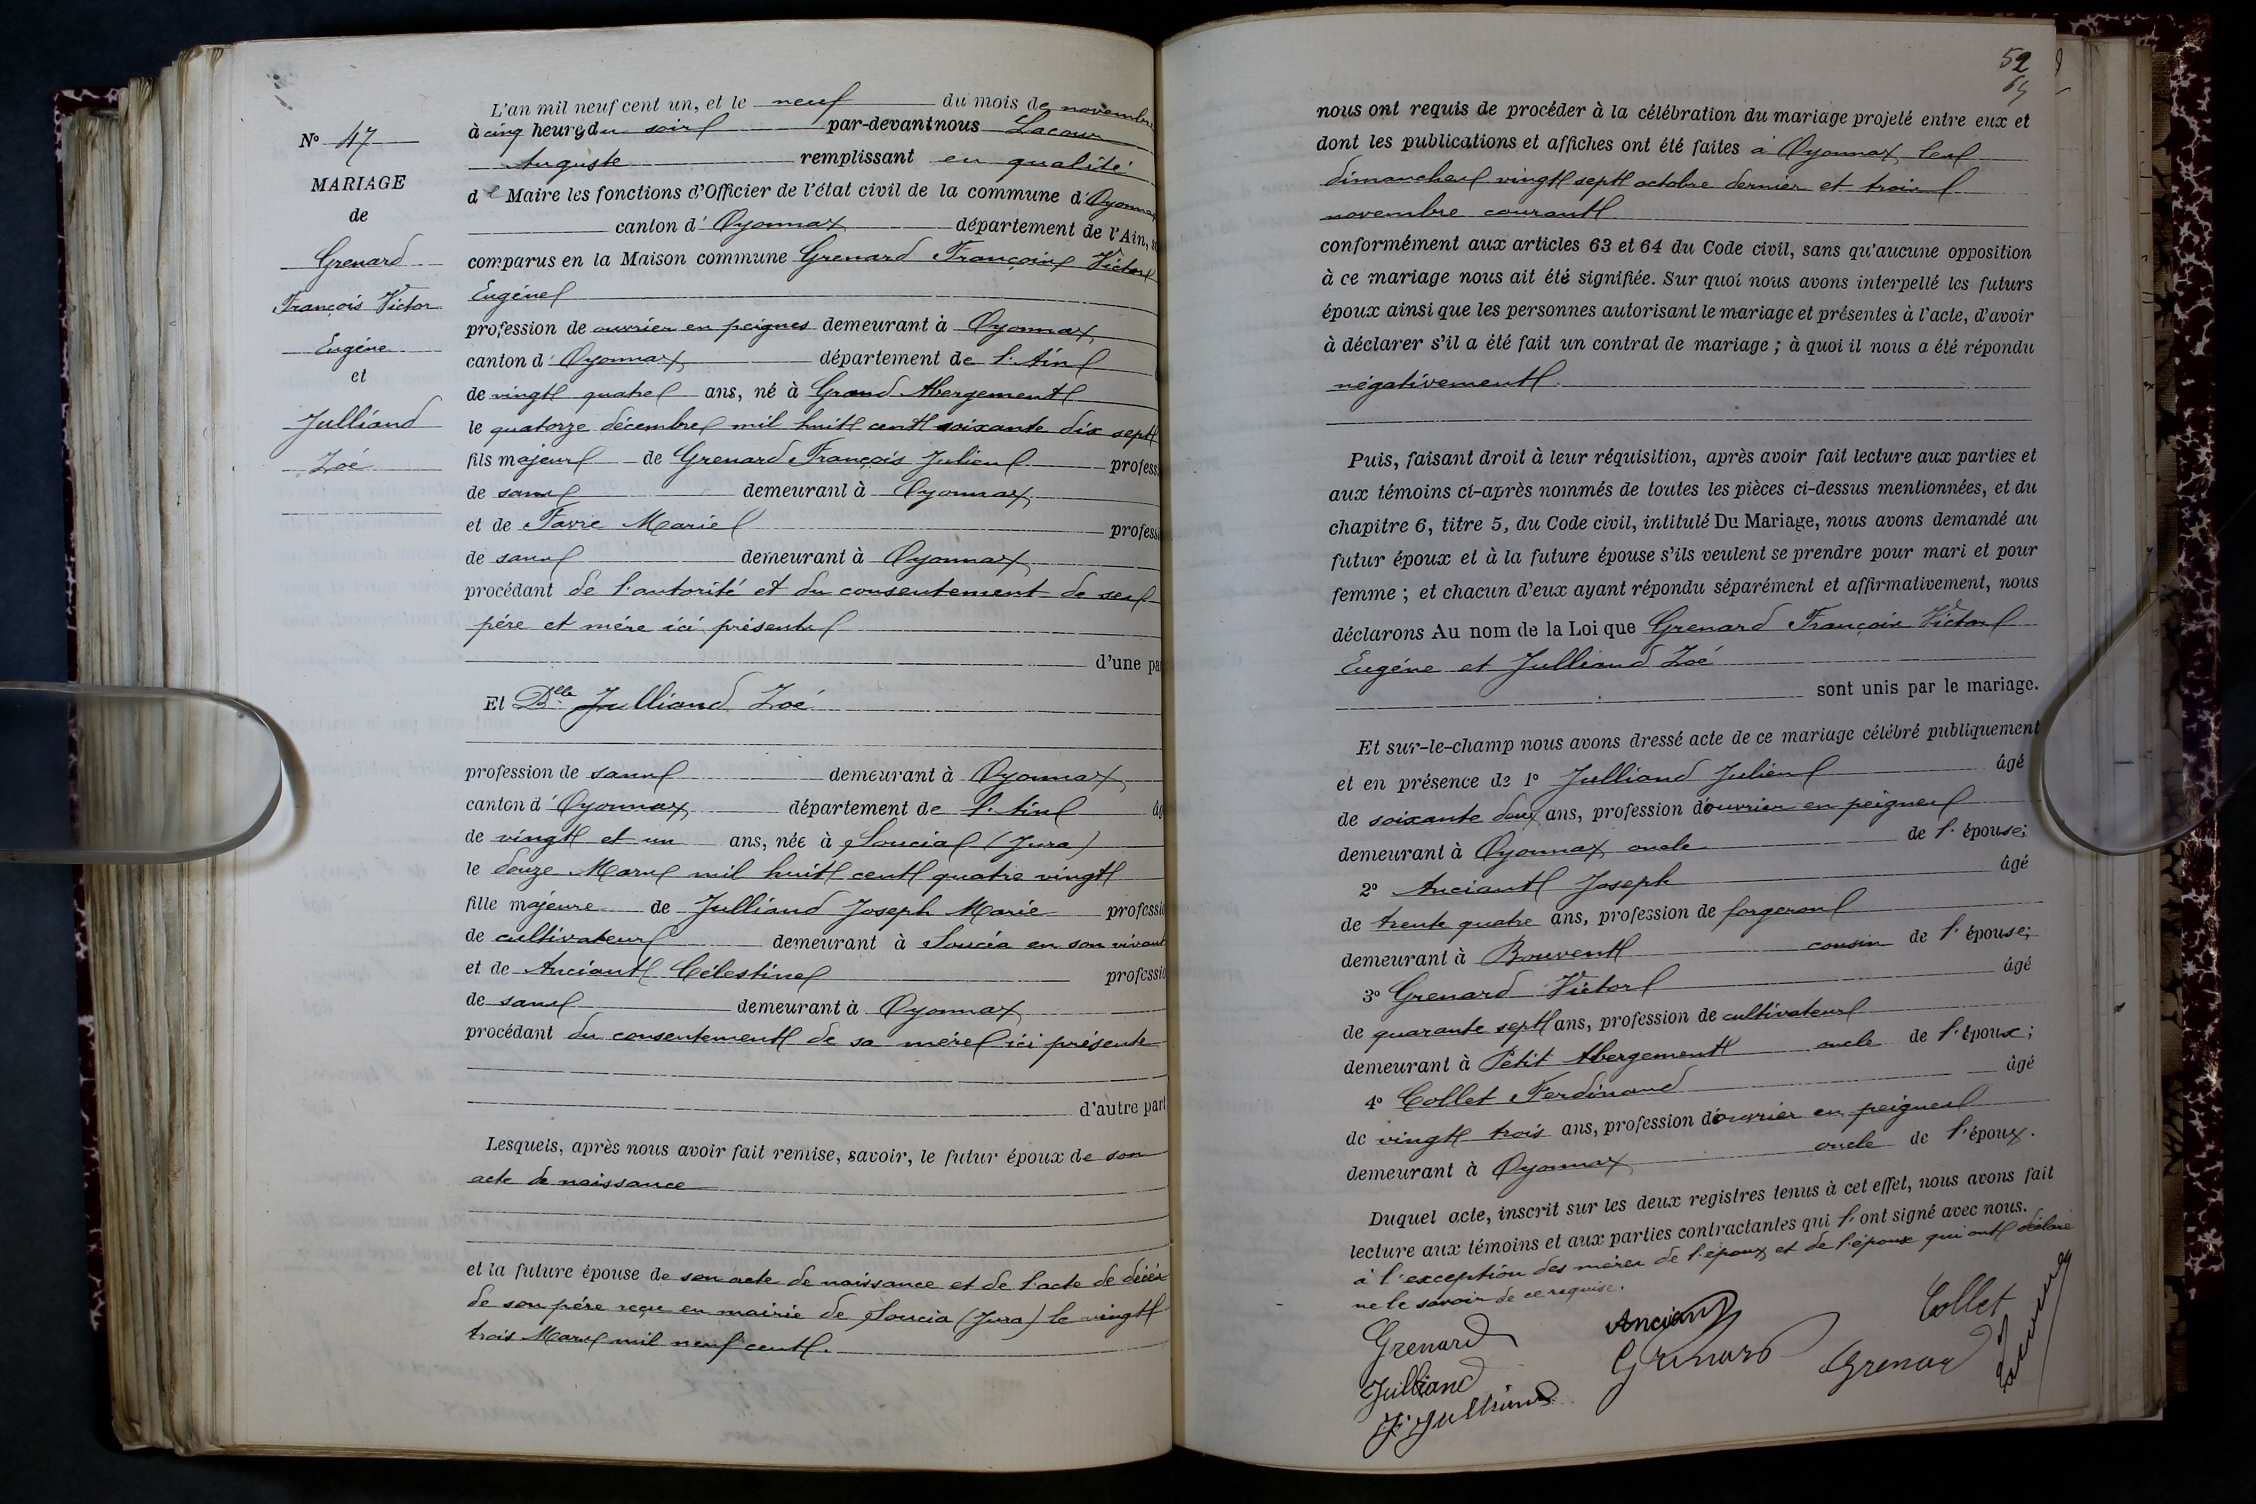 L'an mil neuf cent un, et le neuf du mois de novembre
à cinq heures du soir par-devant nous Lacour
Auguste remplissant en qualité
de Maire les fonctions d'Officier de l'état civil de la commune d'Oyonnax
canton d'Oyonnax département de l'Ain,
comparus en la Maison commune Grenard François Victor
Eugène
profession de ouvrier en peignes demeurant à Oyonnax
canton d'Oyonnax département de l'Ain
de vingt quatre ans, né à Grand Abergement
le quatorze décembre mil huit cent soixante dix sept
fils majeur de Grenard François Julien profess
de sans demeurant à Oyonnax
et de Favre Marie professi
de sans demeurant à Oyonnax
procédant de l'autorité et du consentement de ses
père et mère ici présents
d'une par
Nº 47
MARIAGE
de
Grenard
François Victor
Eugène
et
Julliand
Zoé
Et Dlle Julliand Zoé
profession de sans demeurant à Oyonnax
canton d'Oyonnax département de l'Ain âg
de vingt et un ans, née à Soucia (Jura)
le douze Mars mil huit cent quatre vingt
fille majeure de Julliand Joseph Marie professio
de cultivateur demeurant à Soucia en son vivant
et de Anciant Célestine professio
de sans demeurant à Oyonnax
procédant du consentement de sa mère ici présente
d'autre part
Lesquels, après nous avoir fait remise, savoir, le futur époux de son
acte de naissance
et la future épouse de son acte de naissance et de l'acte de décès
de son père reçu en mairie de Soucia (Jura) le vingt
trois Mars mil neuf cent.
52
nous ont requis de procéder à la célébration du mariage projeté entre eux et
dont les publications et affiches ont été faites à Oyonnax les
dimanches vingt sept octobre dernier et trois
novembre courant
conformément aux articles 63 et 64 du Code civil, sans qu'aucune opposition
à ce mariage nous ait été signifiée. Sur quoi nous avons interpellé les futurs
époux ainsi que les personnes autorisant le mariage et présentes à l'acte, d'avoir
à déclarer s'il a été fait un contrat de mariage ; à quoi il nous a été répondu
négativement.
Puis, faisant droit à leur réquisition, après avoir fait lecture aux parties et
aux témoins ci-après nommés de toutes les pièces ci-dessus mentionnées, et du
chapitre 6, titre 5, du Code civil, intitulé Du Mariage, nous avons demandé au
futur époux et à la future épouse s'ils veulent se prendre pour mari et pour
femme ; et chacun d'eux ayant répondu séparément et affirmativement, nous
déclarons Au nom de la Loi que Grenard François Victor
Eugène et Julliand Zoé
sont unis par le mariage.
Et sur-le-champ nous avons dressé acte de ce mariage célébré publiquement
et en présence de 1º Julliand Julien âgé
de soixante deux ans, profession d'ouvrier en peignes
demeurant à Oyonnax oncle de l'épouse;
2º Anciant Joseph âgé
de trente quatre ans, profession de forgeron
demeurant à Bouvent cousin de l'épouse;
3º Grenard Victor âgé
de quarante sept ans, profession de cultivateur
demeurant à Petit Abergement oncle de l'époux;
4º Collet Ferdinand âgé
de vingt trois ans, profession d'ouvrier en peignes
demeurant à Oyonnax oncle de l'époux.
Duquel acte, inscrit sur les deux registres tenus à cet effet, nous avons fait
lecture aux témoins et aux parties contractantes qui l'ont signé avec nous.
à l'exception des mères de l'époux et de l'épouse qui ont déclaré
ne le savoir de ce requise.
Grenard Anciant Collet
Julliand Grenard Grenard
J. Julliand